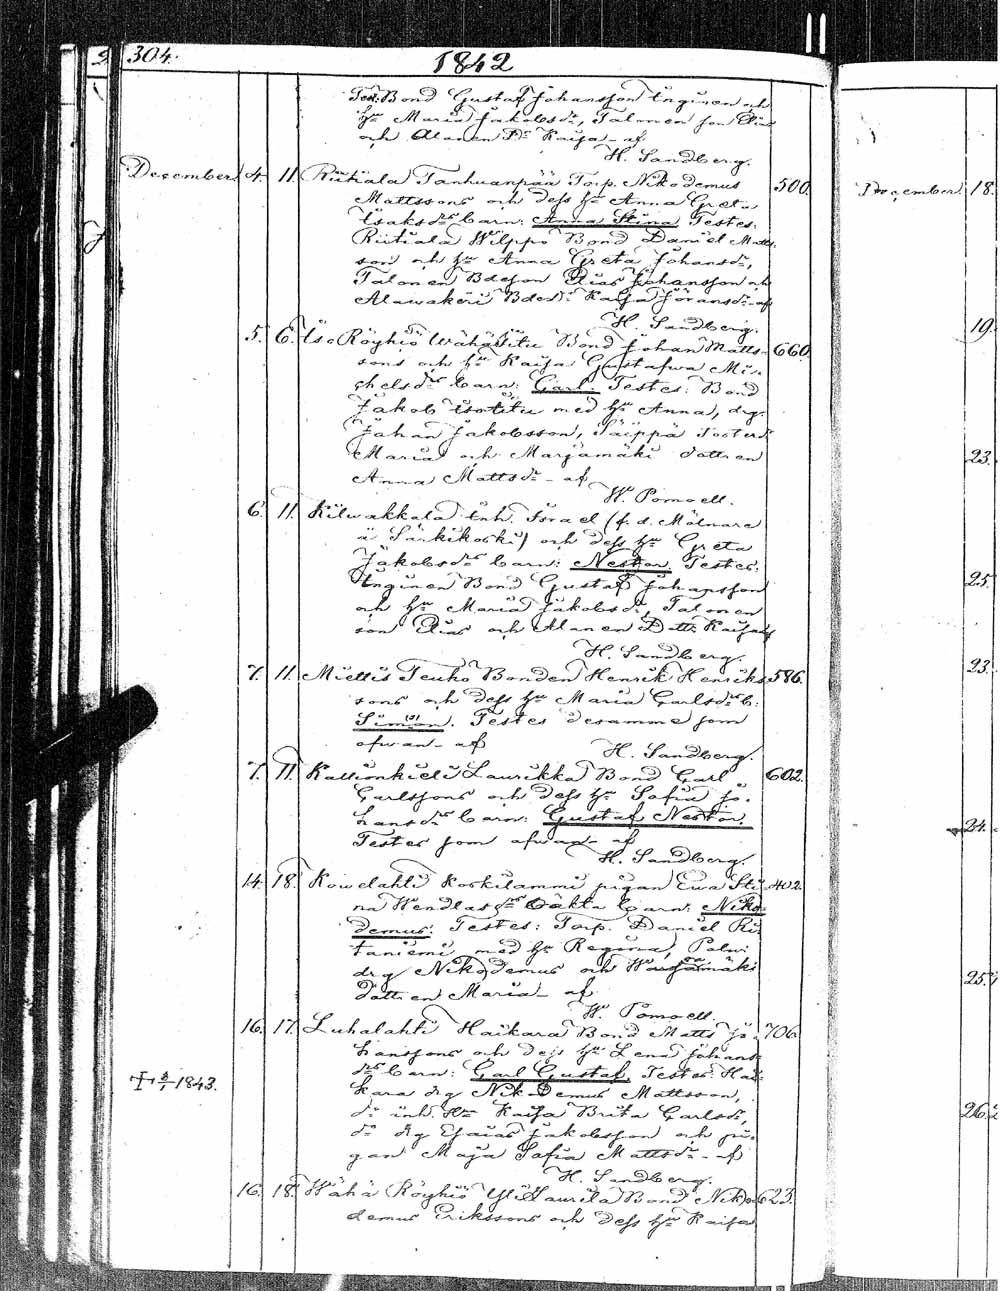 304.
1842
Test. Bond Gustaf Johansson Inginen och
hu Maria Jakobsdr, Talonen son Elias
och Alanen Dr Kaisa - af
H. Sandberg.
December 4. 11. Riitiala Tanhuanpää Torp. Nikodemus 500.
Mattssons och dess hu Anna Greta
Isaksdrs barn: Anna Stina Testes:
Riitiala Wilppo Bond Daniel Matts-
son och hu Anna Greta Johansdr,
Talonen Bdeson Elias Johansson och
Alawakeri Bdedr Kaisa Göransdr - af
H. Sandberg.
5. 6. Iso Röyhiö Wähätitu Bond Johan Matts- 660.
sons och hu Kaisa Gustafwa Mi-
chelsdrs barn: Carl. Testes: Bond
Jakob Isotitu med hu Anna, drg.
Johan Jakobsson, Säippä Dotter
Maria och Marjamäki dottren
Anna Mattsdr - af
W. Pomoell.
6. 11. Kilwakkala Inh. Israel (f. d. Mölnare
å Särkikoski) och dess hu Greta
Jakobsdrs barn: Nestor. Testes:
Inginen Bond Gustaf Johansson
och hu Maria Jakobsdr, Talonen
son Elias och Alanen Dottr Kaisa af
H. Sandberg.
7. 11. Miettis Teuho Bonden Henrik Henriks- 586.
sons och dess hu Maria Carlsdrs b:
Simon. Testes desamme som
ofwan - af
H. Sandberg.
7. 11. Kallionkieli Laurikka Bond Carl 602.
Carlssons och dess hu Sofia Jo-
hansdrs barn: Gustaf Nestor.
Testes som ofwan - af
H. Sandberg.
14. 18. Kowelahti Koskilammi pigan Ewa Sti- 402.
na Wendlasdrs oäkta barn: Niko-
demus: Testes: Torp. Daniel Ri-
taniemi med hu Regina, Palu:
drg Nikodemus och
dottren Maria - af
W. Pomoell.
16. 17. Luhalahti Haikara Bond Matts Jo- 706.
hanssons och dess hu Lena Johans-
drs barn: Carl Gustaf, Testes: Hai-
kara drg Nikodemus Mattsson,
dr inh. Hu Kaisa Brita Carlsdr,
dr drg Esaias Jakobsson och pi-
gan Maja Sofia Mattsdr - af
H. Sandberg.
1843.
16. 18. Wähä Röyhiö Yli Laurila Bond Niko- 623.
demus Erikssons och dess hu Kaisa
December 18.
19.
23.
25.
23.
24.
25.
26.